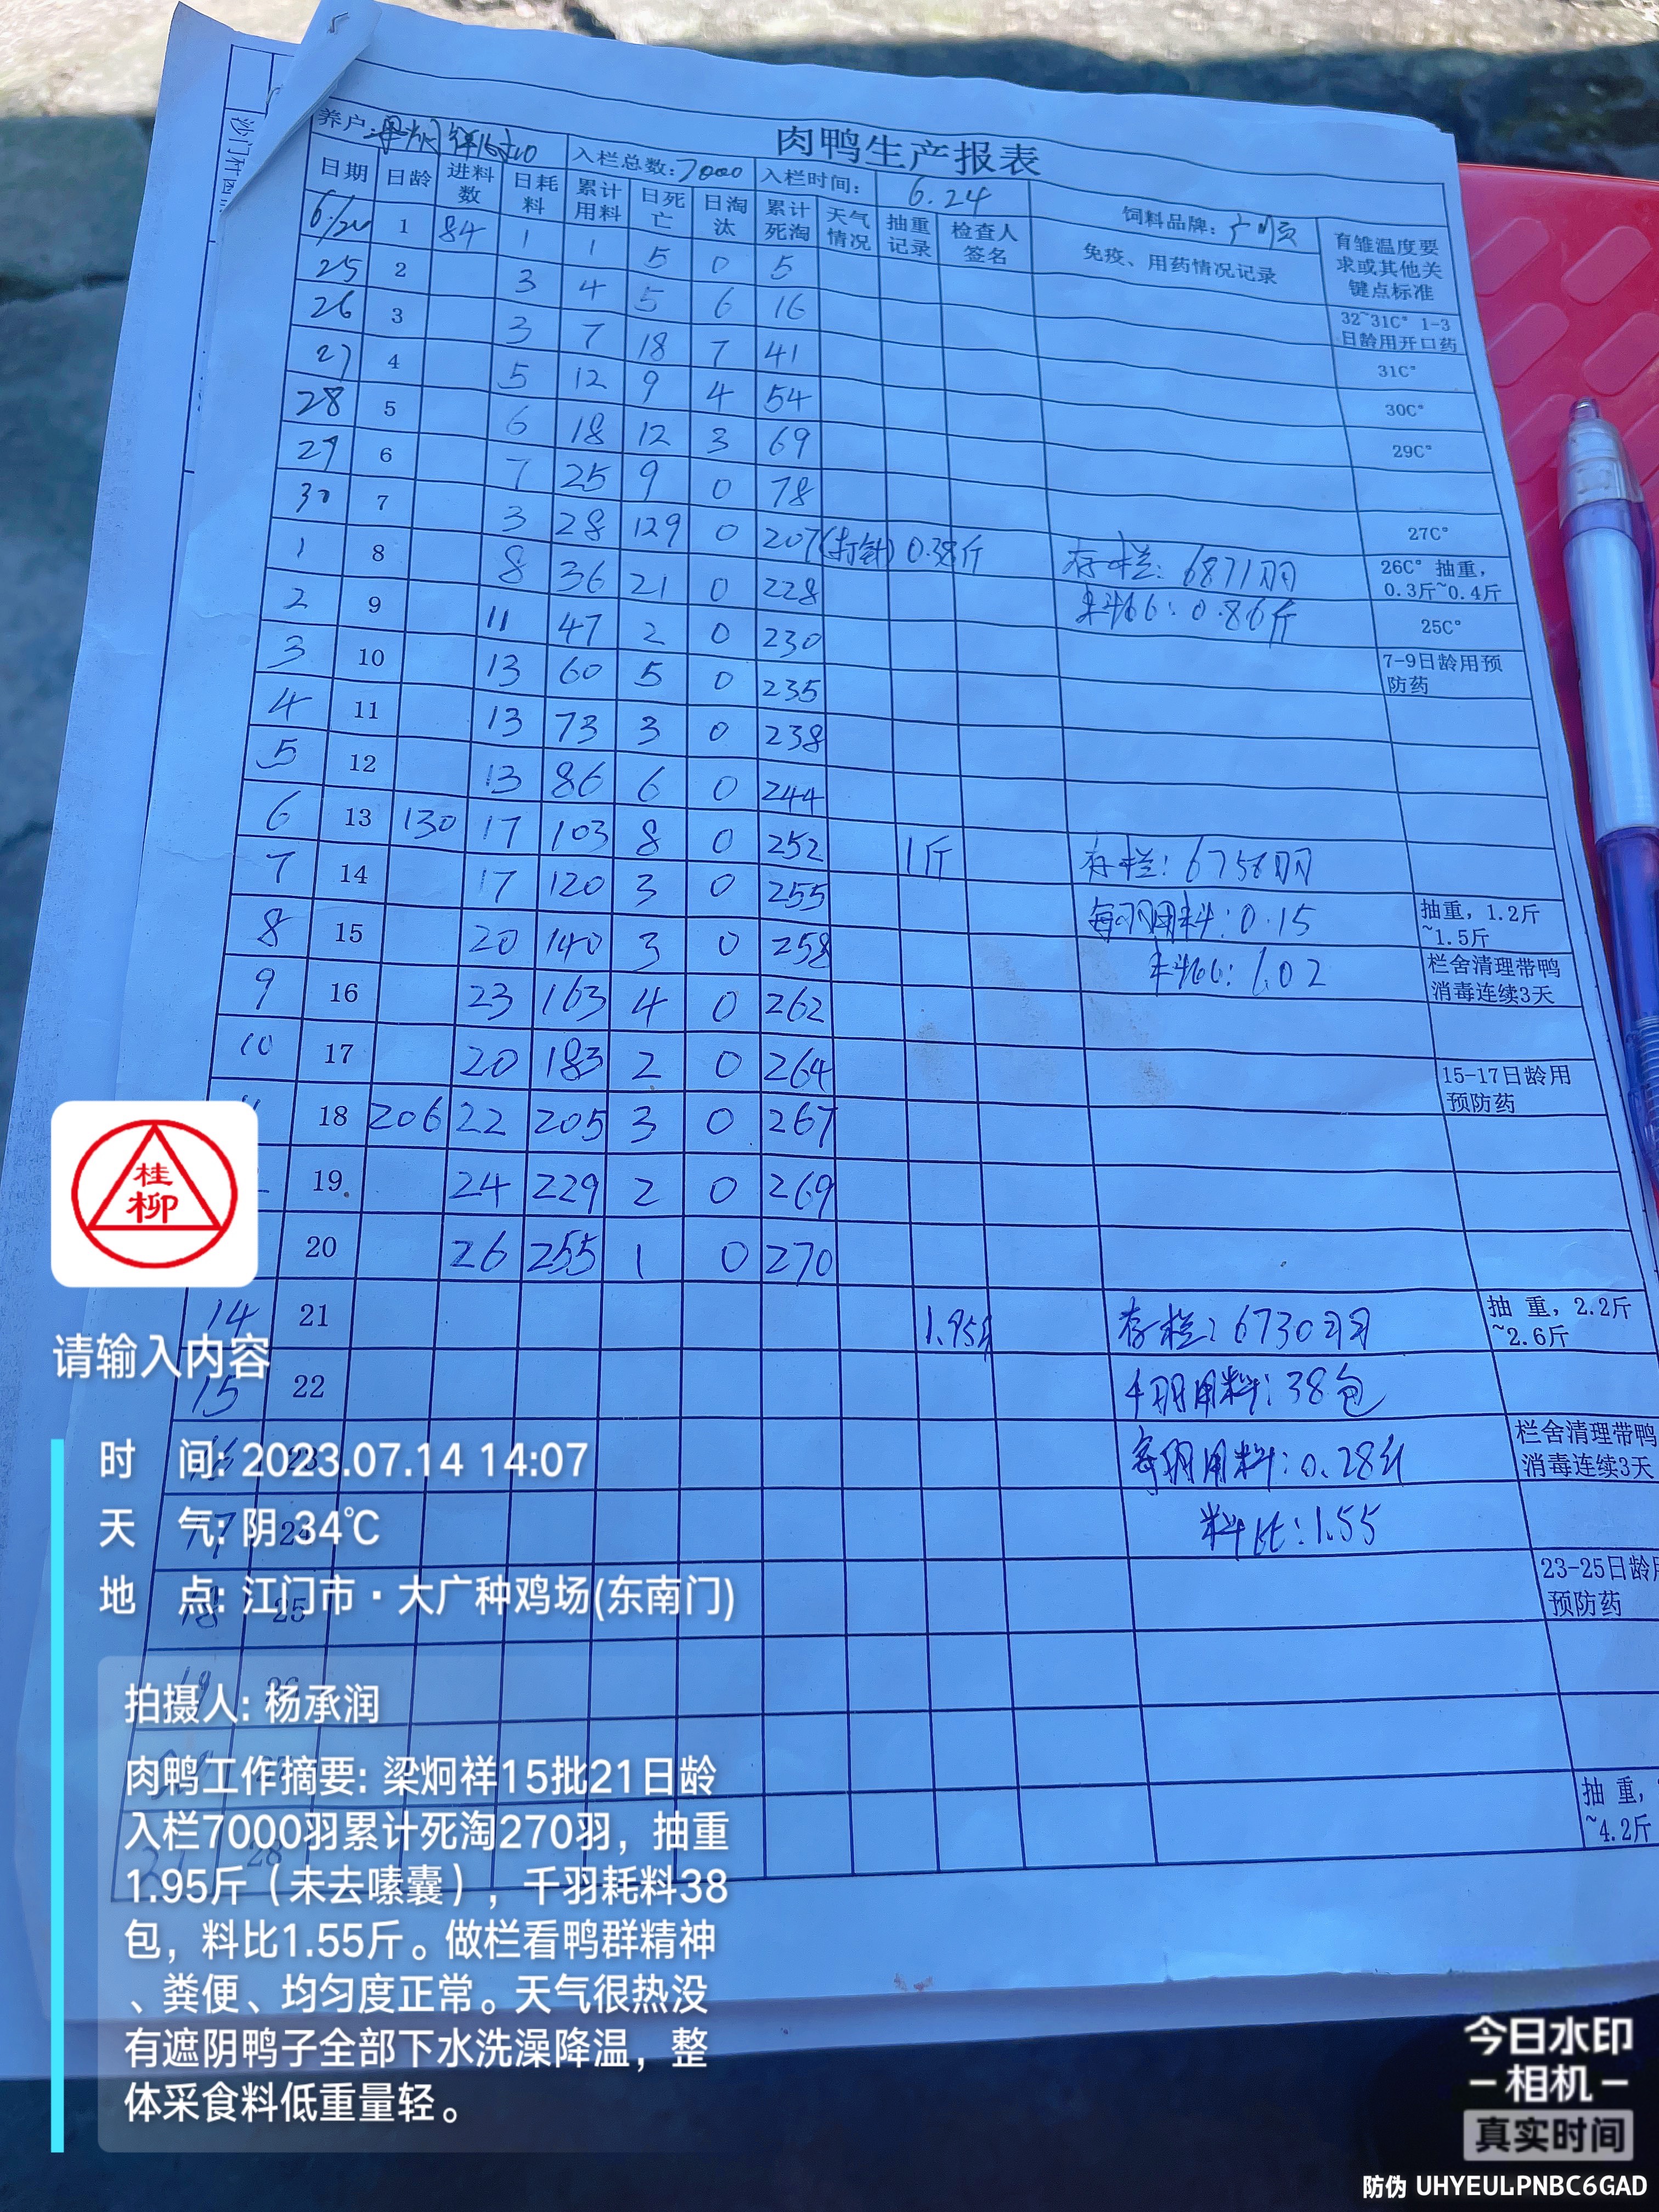 肉鸭生产报表
养户: 入栏总数:7000 入栏时间: 6.24 饲料品牌:
日期 日龄 进料数 日耗料 累计用料 日死亡 日淘汰 累计死淘 天气情况 抽重记录 检查人签名 免疫、用药情况记录 育雏温度要求或其他关键点标准
1 84 1 1 5 0 5
25 2 3 4 5 6 16 32~31C° 1-3日龄用开口药
26 3 3 7 18 7 41 31C°
27 4 5 12 9 4 54 30C°
28 5 6 18 12 3 69 29C°
29 6 7 25 9 0 78
30 7 3 28 129 0 207(打针) 0.38斤 存栏:6871羽 27C°
1 8 8 36 21 0 228 料比:0.86斤 26C° 抽重,0.3斤~0.4斤
2 9 11 47 2 0 230 25C°
3 10 13 60 5 0 235 7-9日龄用预防药
4 11 13 73 3 0 238
5 12 13 86 6 0 244
6 13 130 17 103 8 0 252 1斤 存栏:6758羽
7 14 17 120 3 0 255 每羽用料:0.15 抽重,1.2斤~1.5斤
8 15 20 140 3 0 258 料比:1.02 栏舍清理带鸭消毒连续3天
9 16 23 163 4 0 262
10 17 20 183 2 0 264 15-17日龄用预防药
18 206 22 205 3 0 267
19 24 229 2 0 269
20 26 255 1 0 270
14 21 1.95斤 存栏:6730羽 抽 重,2.2斤~2.6斤
15 22 千羽用料:38包
每羽用料:0.28斤 栏舍清理带鸭消毒连续3天
料比:1.55
23-25日龄用预防药
抽 重,
~4.2斤
桂柳
请输入内容
时 间: 2023.07.14 14:07
天 气: 阴 34℃
地 点: 江门市·大广种鸡场(东南门)
拍摄人: 杨承润
肉鸭工作摘要: 梁炯祥15批21日龄
入栏7000羽累计死淘270羽，抽重
1.95斤（未去嗉囊），千羽耗料38
包，料比1.55斤。做栏看鸭群精神
、粪便、均匀度正常。天气很热没
有遮阴鸭子全部下水洗澡降温，整
体采食料低重量轻。
今日水印
相机
真实时间
防伪 UHYEULPNBC6GAD